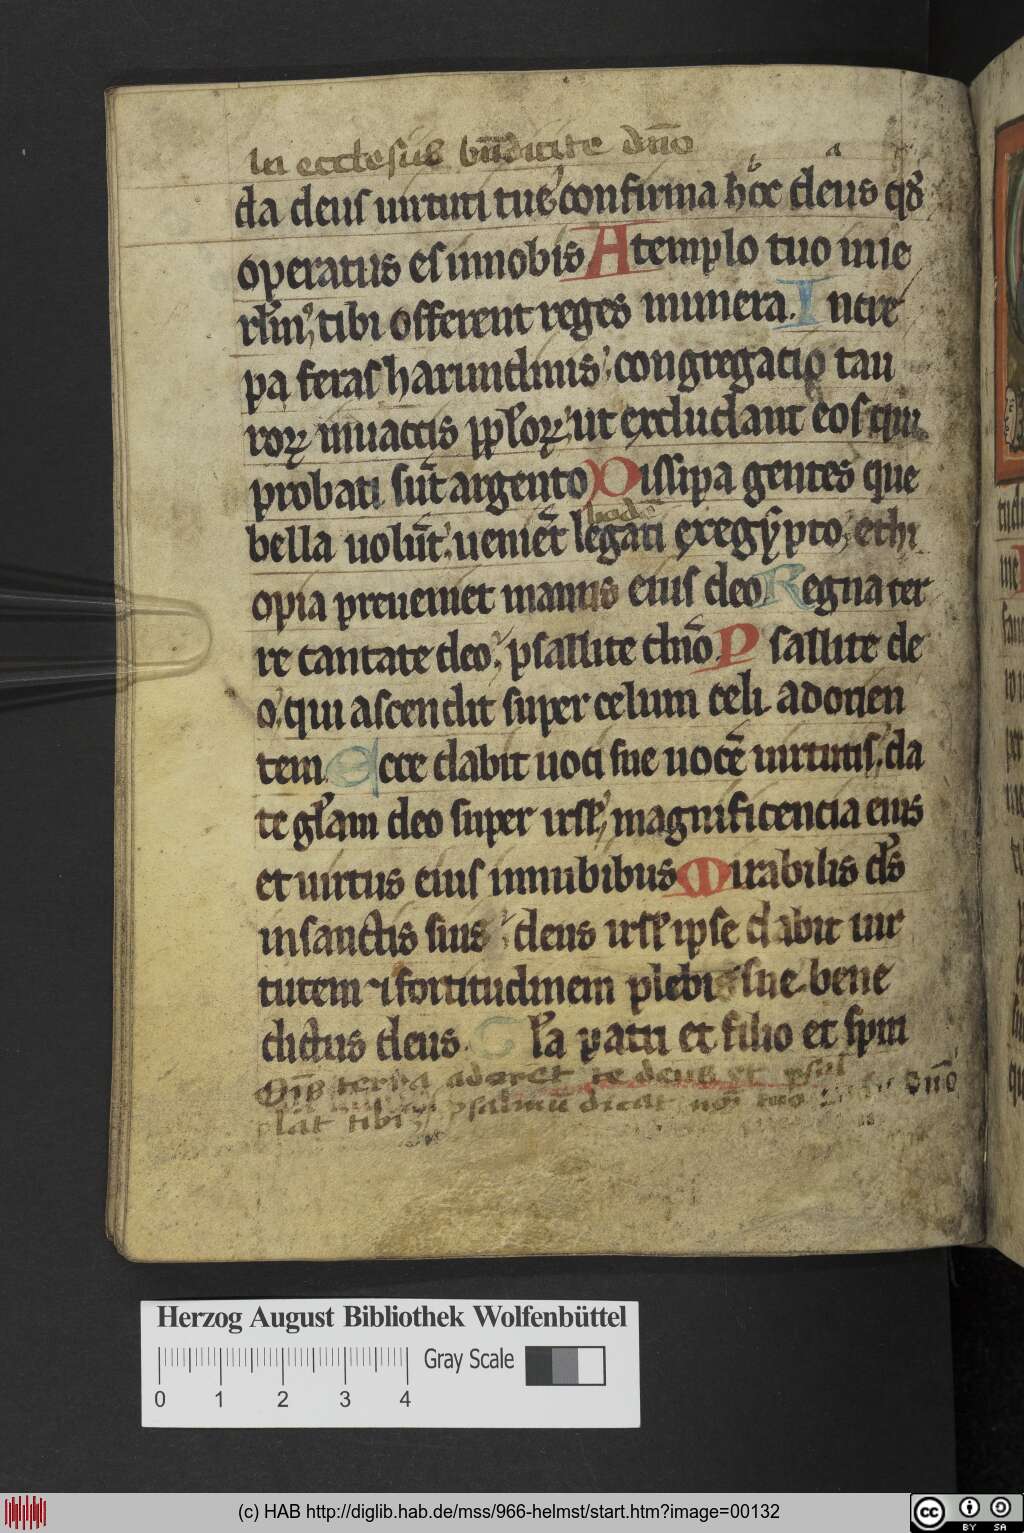 In ecclesiis bn̄dicite dn̄o
b a
da deus uirtuti tue confirma hoc deus qd̕
operatus es innobis A templo tuo in ie
rl̄m, tibi offerent reges munera. Incre
pa feras harundinis, congregacio tau
roꝝ inuaccis pp̄loꝝ, ut excludant eos qui
probati sūt argento Dissipa gentes que
bella uolūt, ueniēt legati exegypto, ethi
opia preueniet manus eius deo Regna ter
re cantate deo, psallite dn̄o. Psallite de
o, qui ascendit super celum celi adorien
tem Ecce dabit uoci sue uocē uirtutis, da
te gl̄am deo super isrl̄, magnificencia eius
et uirtus eius innubibus Mirabilis ds̄
insanctis suis, deus isrl̄ ipse dabit uir
tutem ⁊ fortitudinem plebi sue bene
dictus deus. Gl̄a patri et filio et spiri
Om̄p terra adoret te deus et psal
lat tibi, psalmū dicat noī tuo dn̄o
Herzog August Bibliothek Wolfenbüttel
Gray Scale
0 1 2 3 4
(c) HAB http://diglib.hab.de/mss/966-helmst/start.htm?image=00132
cc BY SA